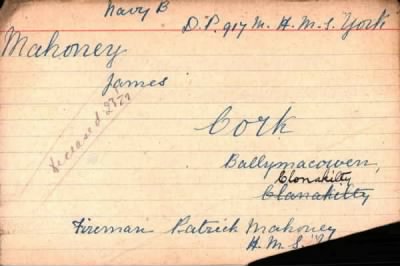 Navy B
D.P. 917 M. H.M.S. York
Mahoney
James
Deceased
Cork
Ballymacowen,
Clonakilty
Clanakilty
Fireman Patrick Mahoney
H.M.S.